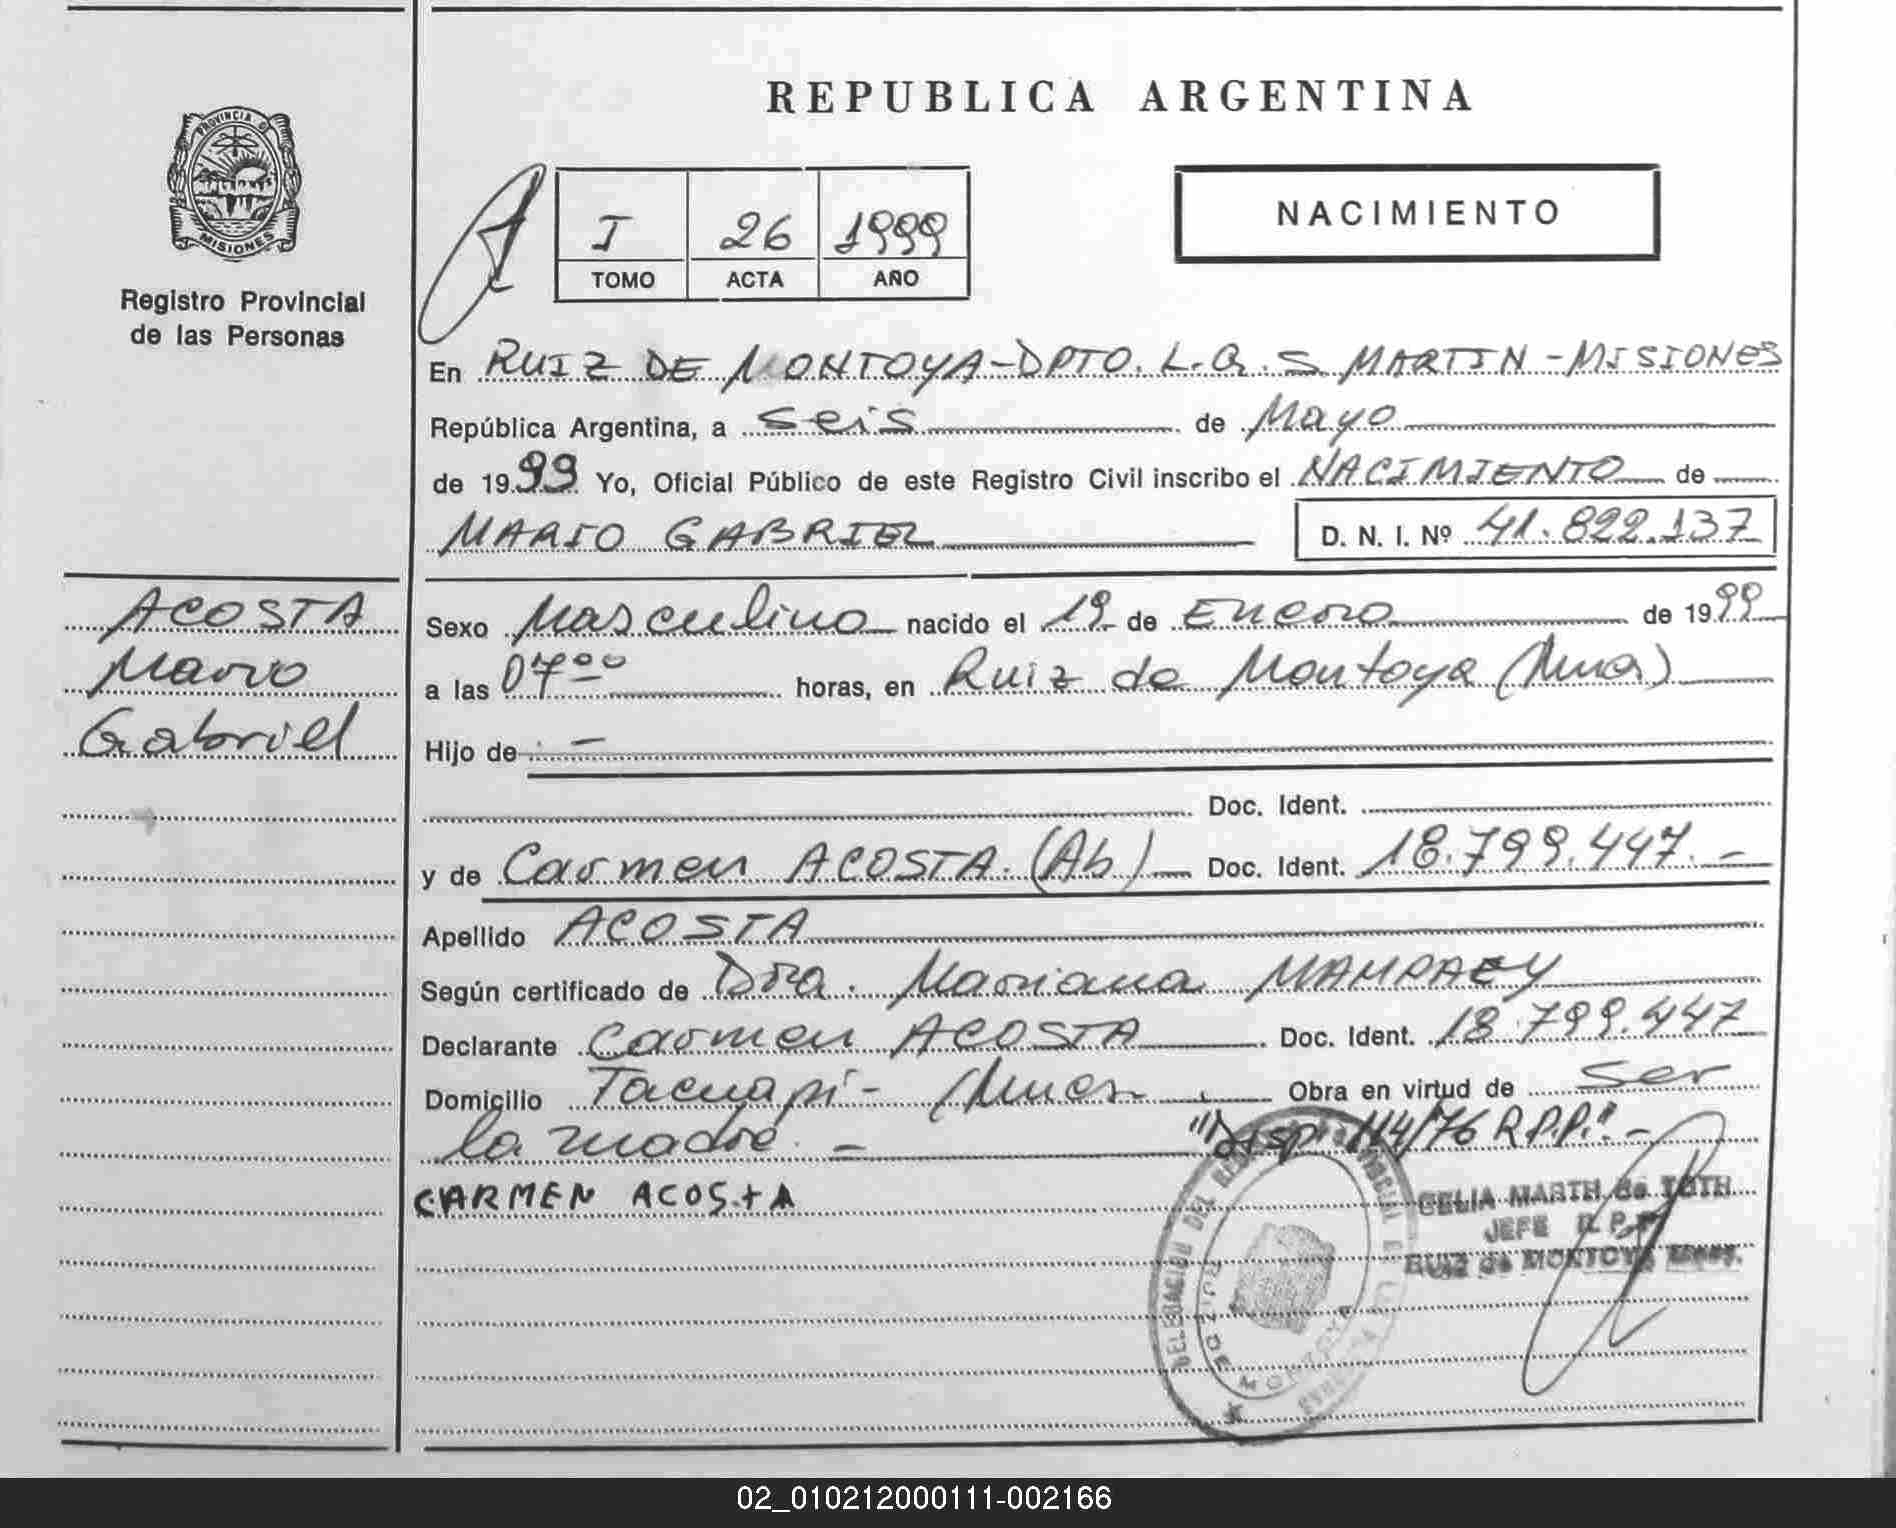 REPUBLICA ARGENTINA
PROVINCIA D
MISIONES
Registro Provincial
de las Personas
I 26 1999
TOMO ACTA AÑO
NACIMIENTO
En RUIZ DE MONTOYA-DPTO. L.G.S. MARTIN - MISIONES
República Argentina, a seis de Mayo
de 1999 Yo, Oficial Público de este Registro Civil inscribo el NACIMIENTO de
MARIO GABRIEL D. N. I. Nº 41.822.137
ACOSTA
Mario
Gabriel
Sexo Masculino nacido el 19 de Enero de 1999
a las 07 00 horas, en Ruiz de Montoya (Mnes)
Hijo de -
Doc. Ident.
y de Carmen ACOSTA (Ab) Doc. Ident. 18.799.447.-
Apellido ACOSTA
Según certificado de Dra. Mariana MAMPAEY
Declarante Carmen ACOSTA Doc. Ident. 18.799.447
Domicilio Tacuapi- Mnes. Obra en virtud de ser
la madre. - "Disp 114/76 R.P.P." -
CARMEN ACOSTA
CELIA MARTH de TOTH
JEFE R. P. P.
RUIZ de MONTOYA Mnes.
DELEGACION DEL REGISTRO PROVINCIAL DE
RUIZ DE MONTOYA
02_010212000111-002166